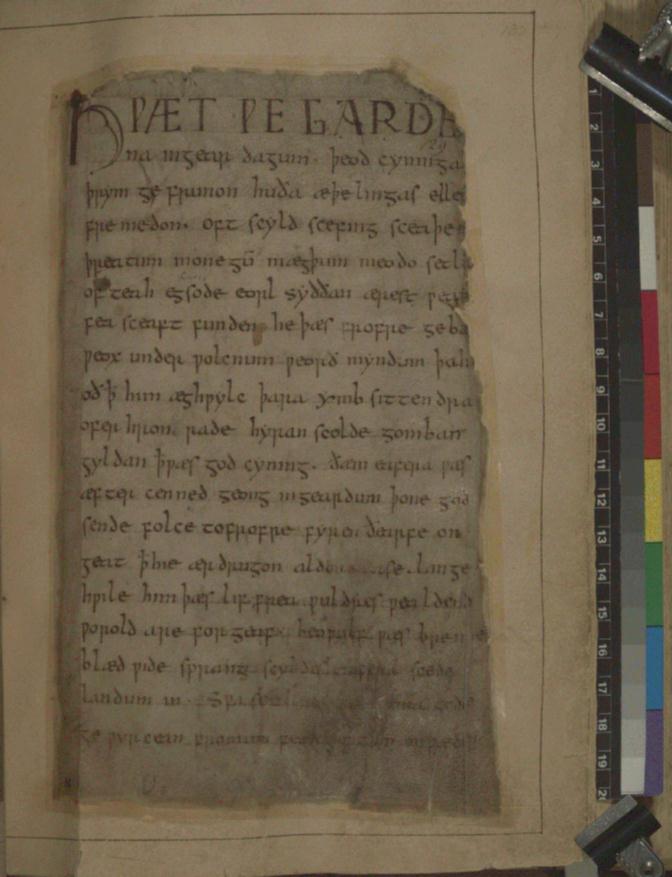 HǷÆT ǷE GARDE
na ingear dagum. þeod cyninga
þrym ge frunon huða æþelingas elle
fre medon. oft scyld scefing sceaþe
þreatum monegū mægþum meodo setla
of teah egsode eorl syððan ærest ƿea
fea sceaft funden he þæs frofre geba
ƿeox under ƿolcnum ƿeorð myndum þah
oðꝥ him æghƿylc þara ymb sittendra
ofer hron rade hyran scolde gomban
gyldan ꝥ ƿæs god cyning. ðæm eafera ƿæs
æfter cenned geong in geardum þone god
sende folce tofrofre fyren ðearfe on
geat ꝥ hie ær drugon aldor ase. lange
hƿile him þæs lif frea ƿuldres ƿealdend
ƿorold are forgeaf. beoƿulf ƿæs breme
blæd ƿide sprang scyldes eafera scede
landum in. Sƿa
ge ƿyrcean fromum